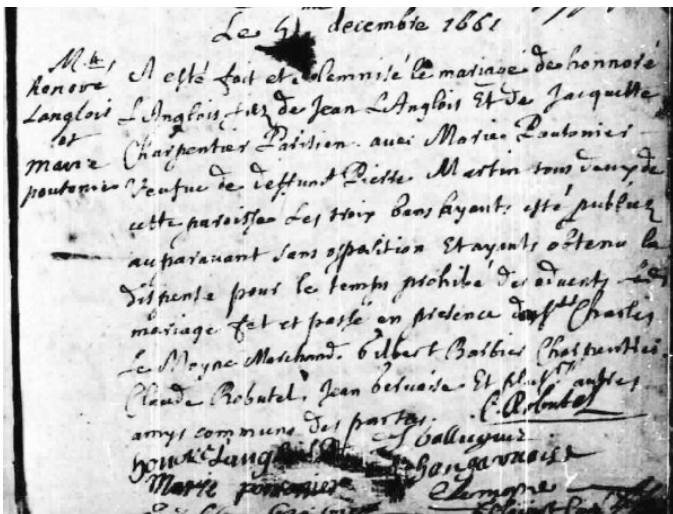 Le 5 decembre 1661
M.
honoré
Langlois
et
marie
pontonier
A esté fait et solemnisé le mariage de honnoré
L'Anglois, filz de Jean L'Anglois Et de Jacquette
Charpentier Parisien. avec Marie Pontonier
Veufue de deffunt Pierre Martin tous deux de
cette paroisse Les trois bans ayants esté publiez
auparavant sans opposition Et ayants obtenu la
dispense pour le temps prohibé des advents Led.
mariage fet et passé en presence de Charles
Le Moyne Marchand. Gilbert Barbier Charpentier.
Claude Robutel, Jean Gervaise Et plusrs autres
amys communs des partyes.
C. Robutel
honoré Langlois
J. Gervaise
Marie pontonier
Lemoyne